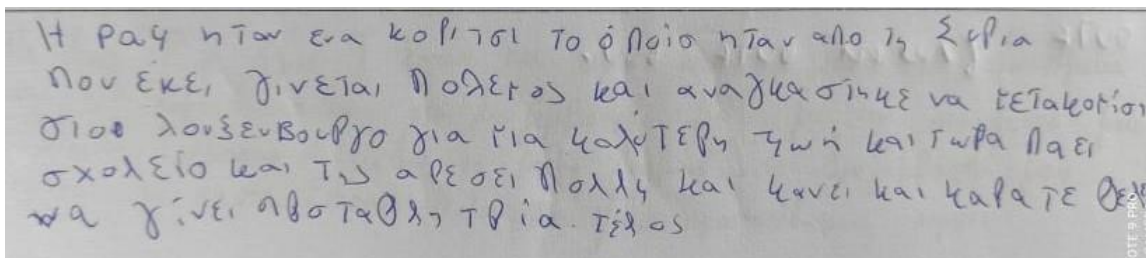 Η ραφ ηταν ενα κοριτσι το όποιο ηταν απο τη Συρια
που έκει γινεται πολεμος και αναγκαστηκε να μετακομισι
στιο λουξενβουργο για μια καλύτερη ζωή και τωρα παει
σχολείο και της αρεσει πολλη και κανει και καρατε θελ
να γίνει προταθλητρία. τέλος
OTE 9 PRO